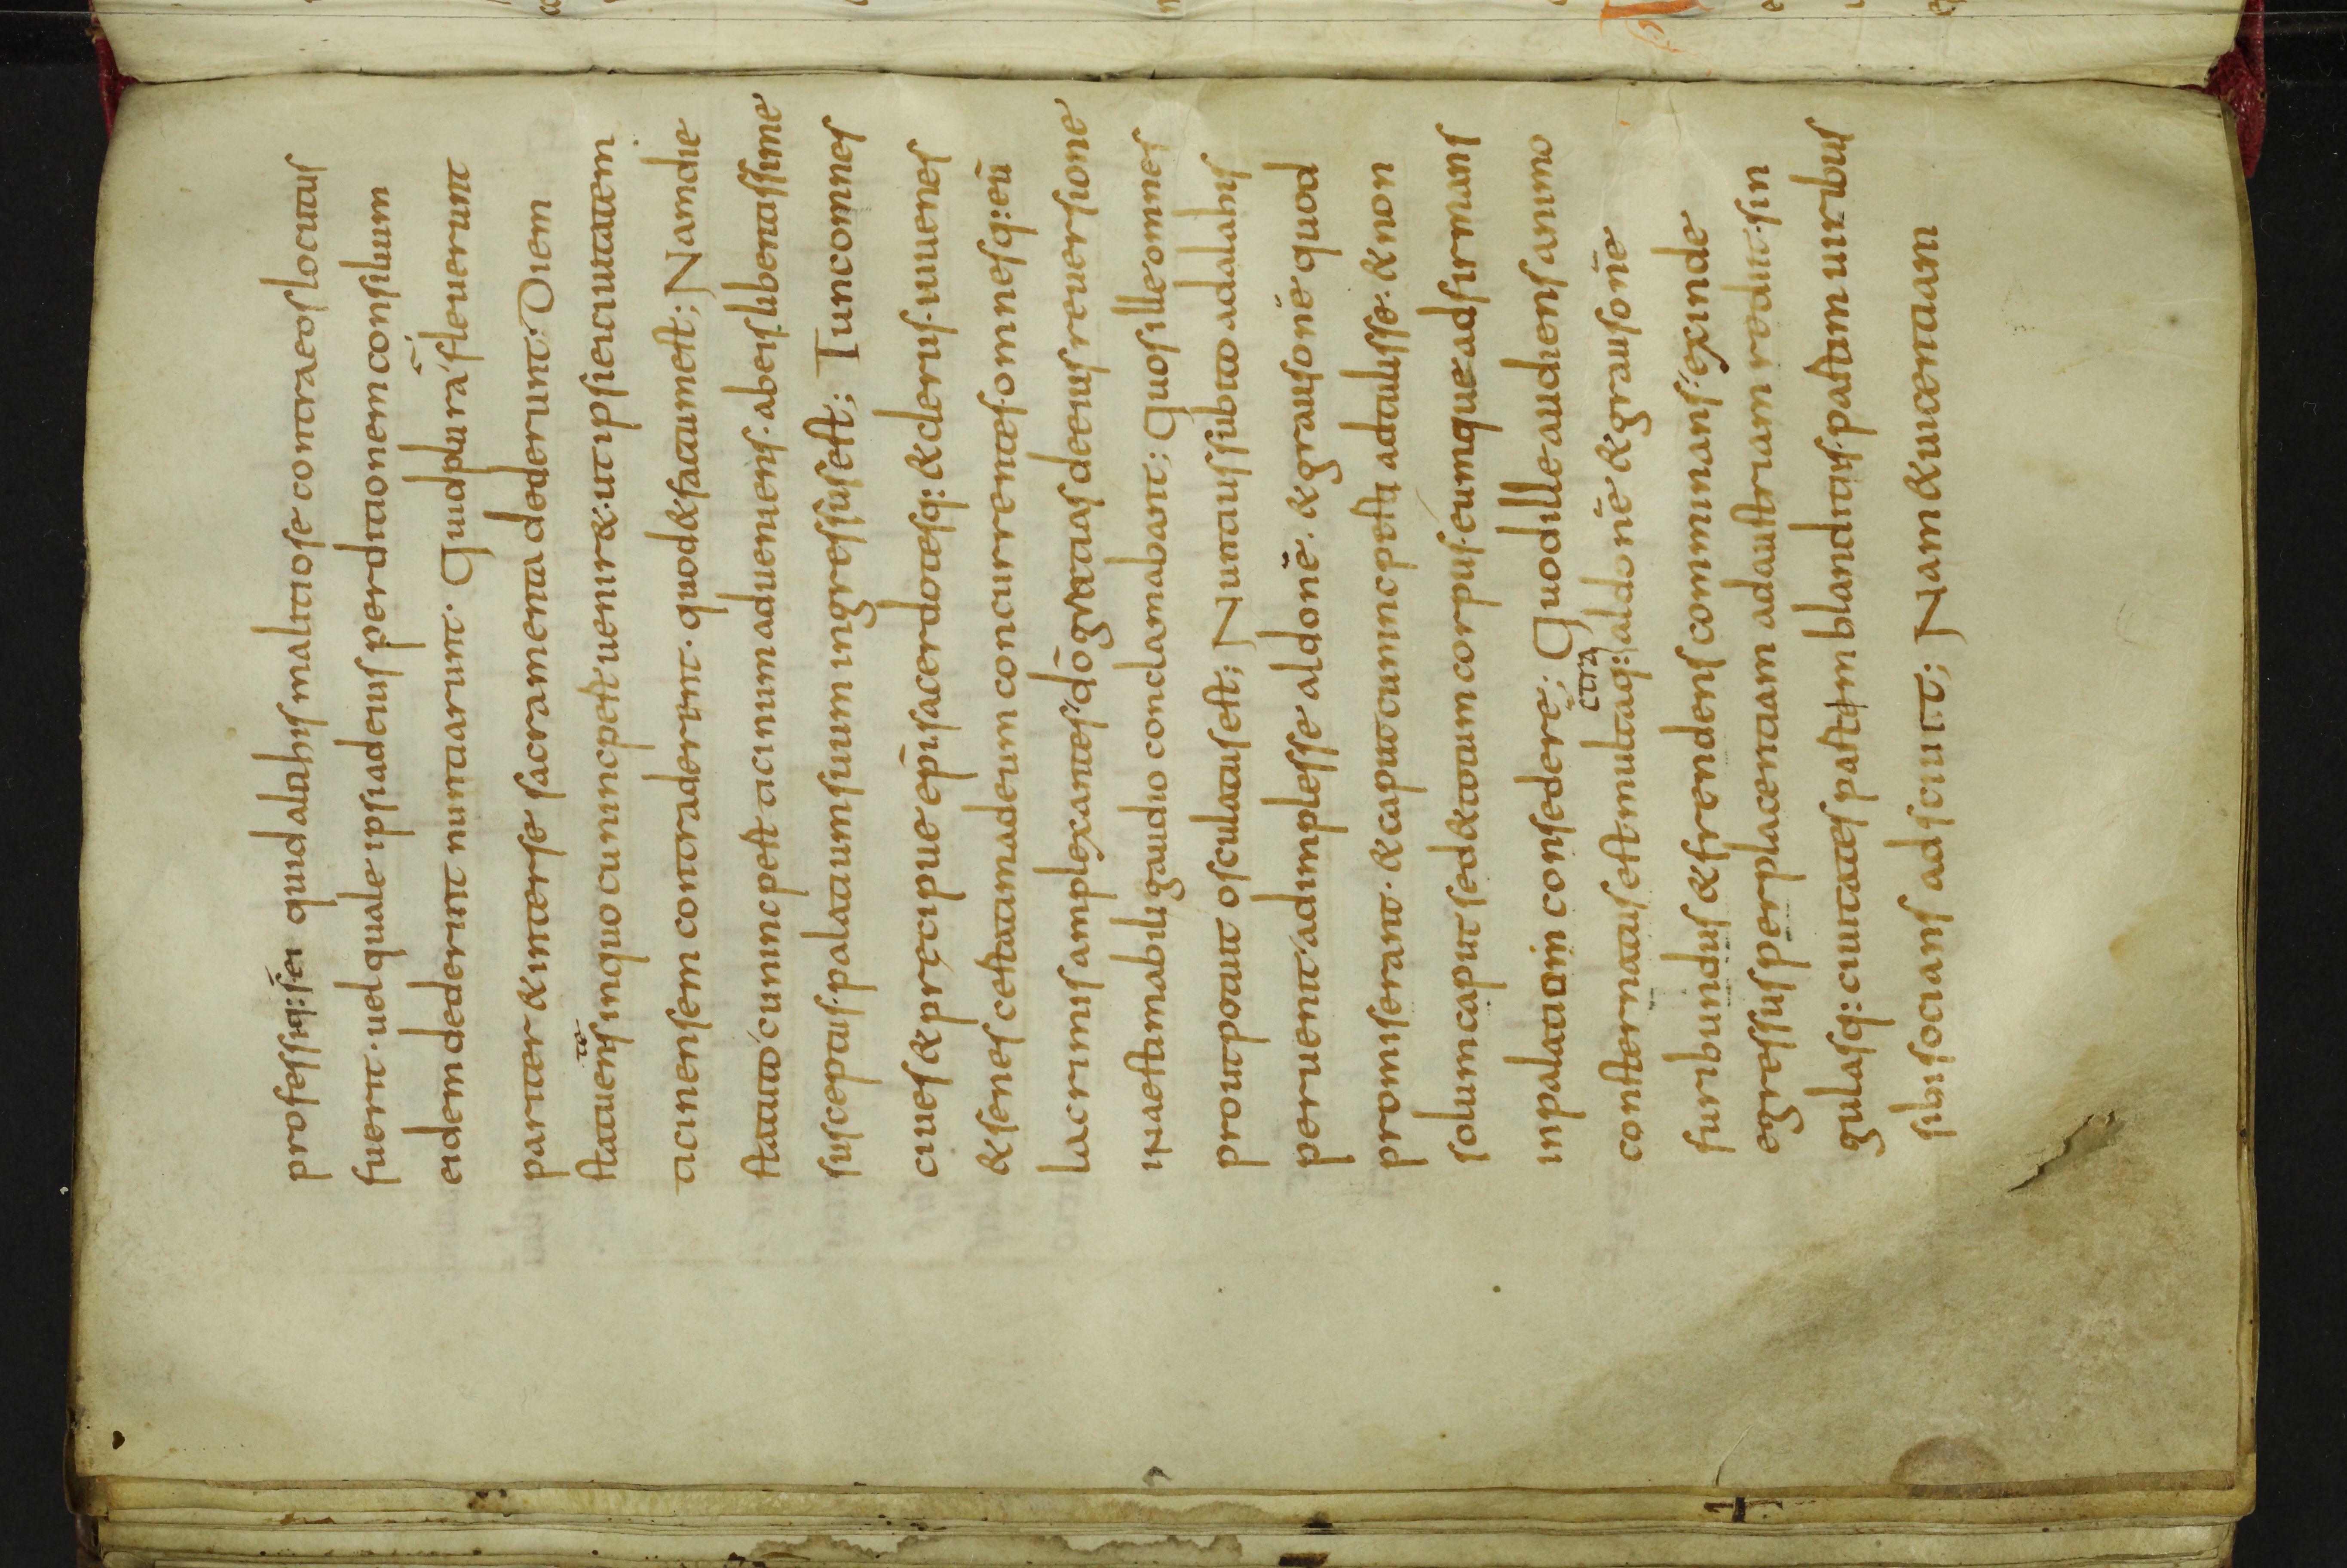 professiq: s̄ei quid alahis malitiose contra eos locutus
fuerit · uel quale ipsi ad eius perditionem consilium
eidem dederint nuntiarunt · Quid plura fleuerunt
pariter & inter se sacramenta dederunt · Diem
statuens inquo cunincpert uenir&· ut ipsi ei ciuitatem
ticinensem contraderint · quod & factum est ; Nam die
statuto cunincpert ticinum adueniens · ab eis libentissime
susceptus · palatium suum ingressus est ; Tunc omnes
ciues & precipue ep̄i sacerdotesq: & clerus · iuuenes
& senes certatim ad eum concurrentes · omnesq: eū
lacrimis amplexantes dō gratias de eius reuersione
inaestimabili gaudio conclamabant ; Quos ille omnes
prout potuit osculatus est ; Nuntius subito ad alahis
peruenit adimplesse aldonē · & grausonē quod
promiserant · & caput cunincperti adtulisse · & non
solum caput sed & totum corpus · eumque adfirmans
inpalatio in consedere ; Quod ille audiens animo
consternatus est multaq: c̄tra aldonē & grausonē
furibundus & frendens comminans exinde
egressus per placentiam ad austriam rediit · sin
gulasq: ciuitates partim blanditiis · partim uiribus
sibi socians adsciuit ; Nam & uicentiam